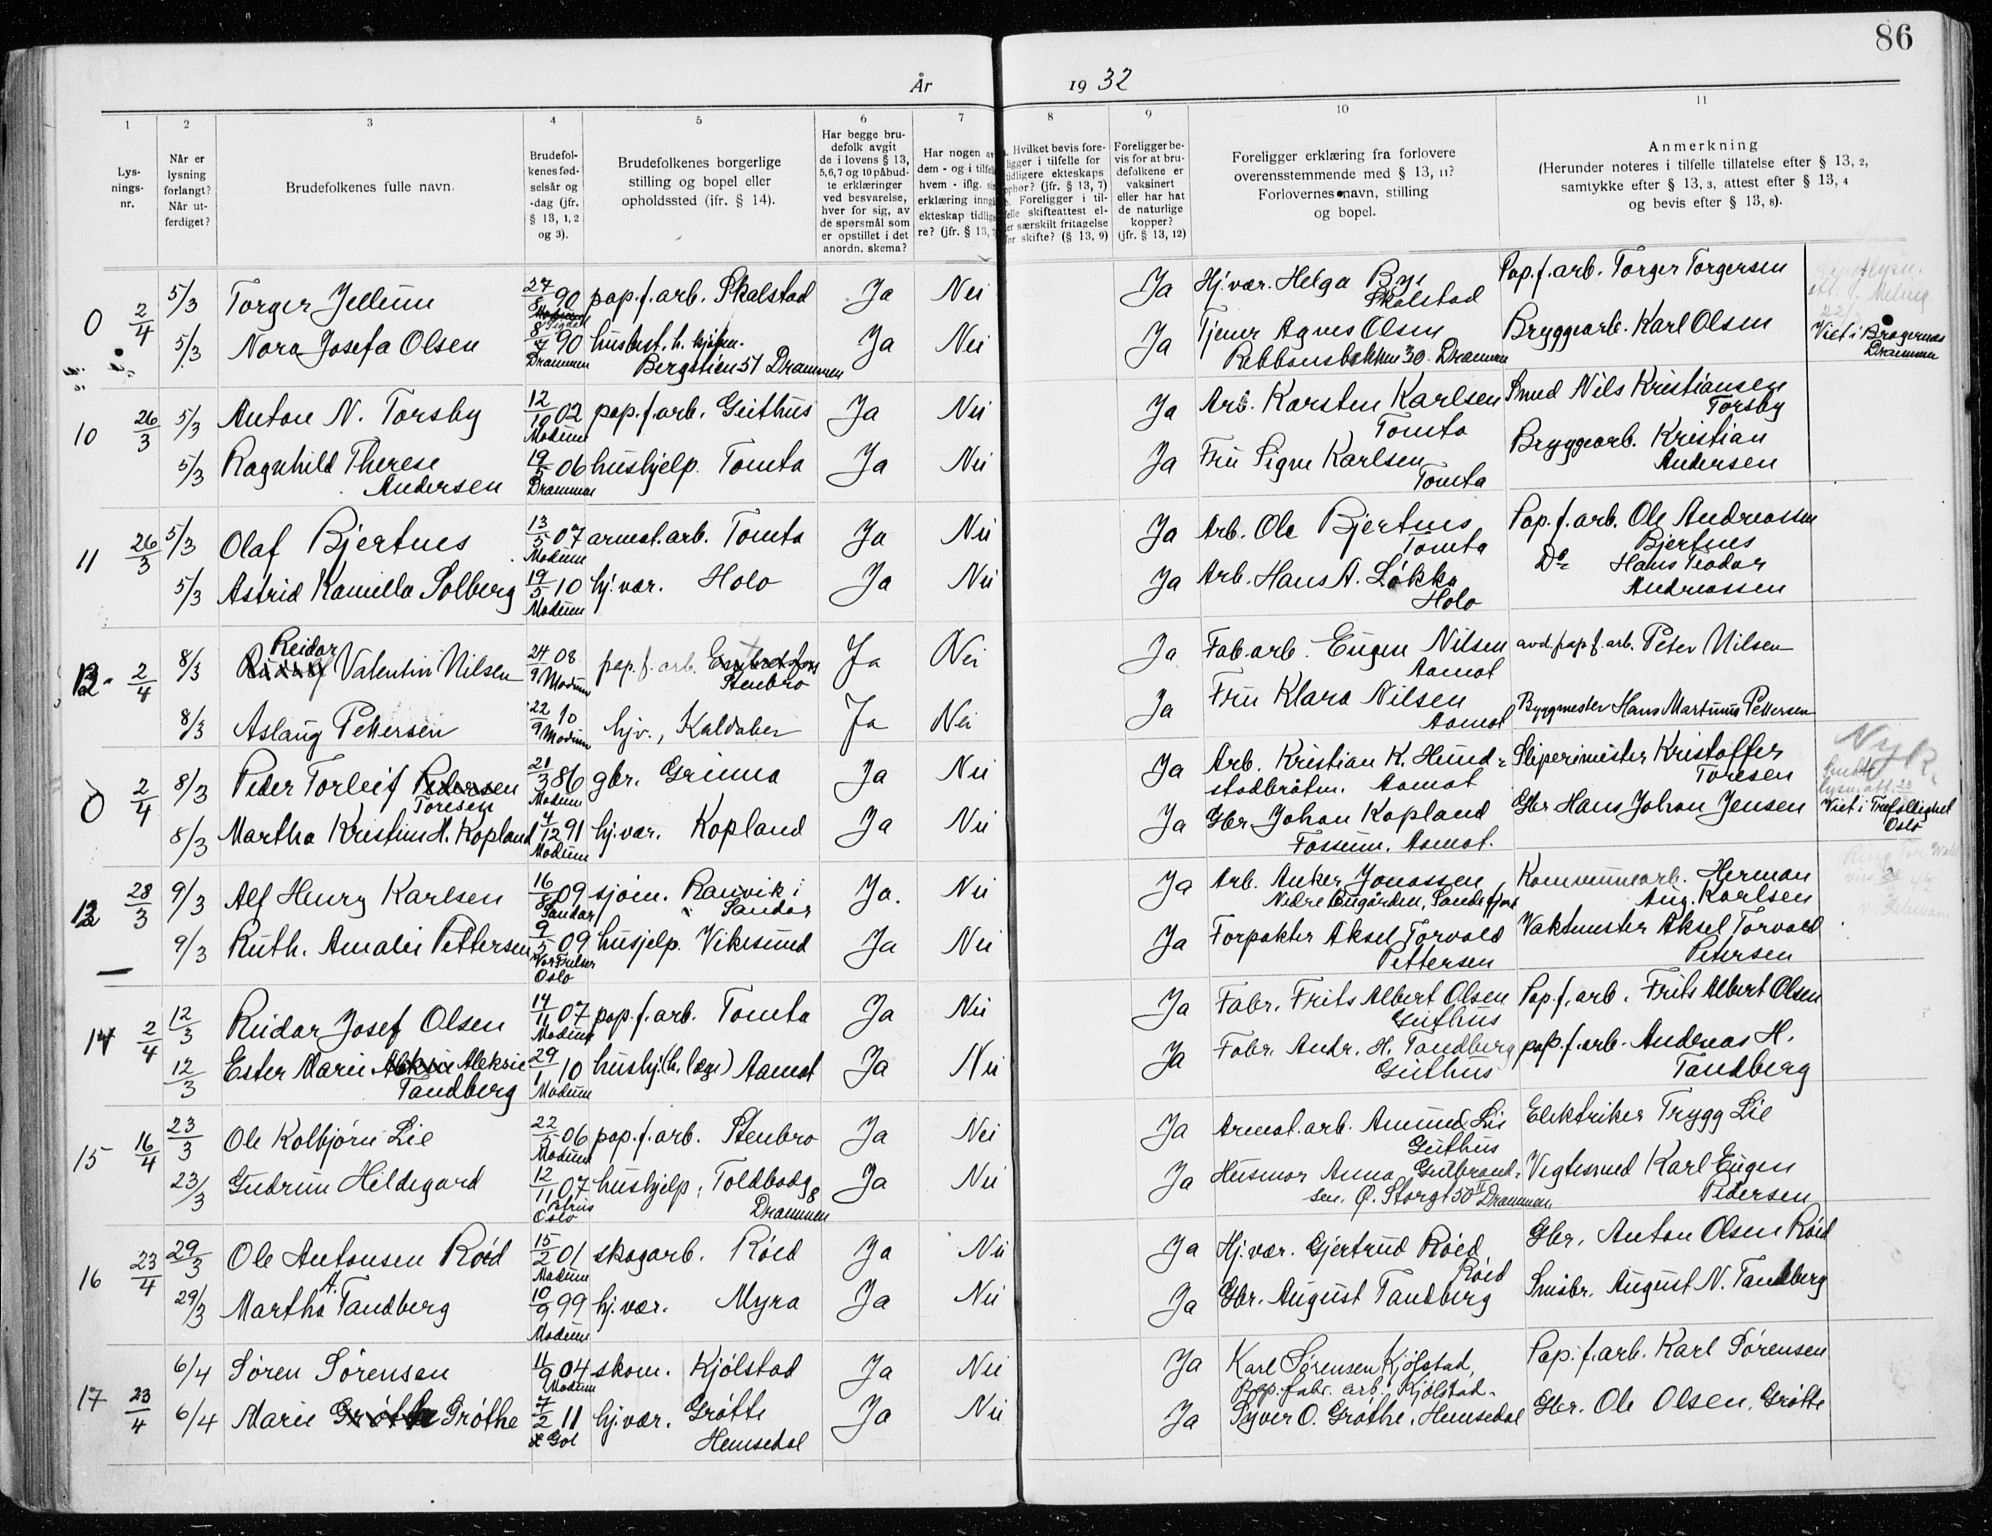 86
År 1932
1 2 3 4 5 6 7 8 9 10 11
Lys-
nings-
nr.
Når er
lysning
forlangt?
Når ut-
ferdiget?
Brudefolkenes fulle navn.
Brudefol-
kenes fød-
selsår og
-dag (jfr.
§ 13, 1, 2
og 3).
Brudefolkenes borgerlige
stilling og bopel eller
opholdssted (jfr. § 14).
Har begge bru-
defolk avgit
de i lovens § 13,
5,6,7 og 10 påbud-
te erklæringer
ved besvarelse,
hver for sig, av
de spørsmål som
er opstillet i det
anordn. skema?
Har nogen av
dem - og i tilfelle
hvem - iflg. sin
erklæring inngått
ekteskap tidlige-
re? (jfr. § 13, 7)
a. Hvilket bevis fore-
ligger i tilfelle for
tidligere ekteskaps
ophør? (jfr. § 13, 7)
b. Foreligger i til-
felle skifteattest el-
ler særskilt fritagelse
for skifte? (§ 13, 9)
Foreligger be-
vis for at bru-
defolkene er
vaksinert
eller har hat
de naturlige
kopper?
(jfr. § 13, 12)
Foreligger erklæring fra forlovere
overensstemmende med § 13, 11?
Forlovernes navn, stilling
og bopel.
Anmerkning
(Herunder noteres i tilfelle tillatelse efter § 13, 2,
samtykke efter § 13, 3, attest efter § 13, 4
og bevis efter § 13, 8).
0 2/4 5/3 Torger Jellum 27/8 90 Sigdal pap.f.arb. Skalstad Ja Nei Ja Hj.vær. Helga Bye Skalstad Pap.f.arb. Torger Torgersen
5/3 Nora Josefa Olsen 8/7 90 Drammen husbest. h. kjøpm. Bergstien 51 Drammen Ja Nei Ja Tjener Agnes Olsen 30. Drammen Bryggearb. Karl Olsen Viet i Bragernes Drammen
10 26/3 5/3 Anton N. Torsby 12/10 02 Modum pap.f.arb. Geithus Ja Nei Ja Arb. Karsten Karlsen Tomta Smed Nils Kristiansen Torsby
5/3 Ragnhild Therese Andersen 19/5 06 Drammen hushjelp. Tomta Ja Nei Ja Fru Signe Karlsen Tomta Bryggearb. Kristian Andersen
11 26/3 5/3 Olaf Bjertnes 13/5 07 Modum armat.arb. Tomta Ja Nei Ja Arb. Ole Bjertnes Tomta Pap.f.arb. Ole Andreassen Bjertnes
5/3 Astrid Kamilla Solberg 19/5 10 Modum hj.vær. Holo Ja Nei Ja Arb. Hans A. Løkka Holo Do Hans Teodor Andreassen
12 2/4 8/3 Reidar Valentin Nilsen 24/9 08 Modum pap.f.arb. Embretsfoss Stenbro Ja Nei Ja Fab.arb. Eugen Nilsen Aamot avd.pap.f.arb. Peter Nilsen
8/3 Aslaug Pettersen 22/9 10 Modum hjv., Kaldaber Ja Nei Ja Fru Klara Nilsen Aamot Byggmester Hans Martinius Pettersen
0 2/4 8/3 Peder Torleif Pedersen Toresen 21/3 86 Modum gbr. Grinna Ja Nei Ja Arb. Kristian K. Hund= stadbråtm. Aamot Sliperimester Kristoffer Toresen
8/3 Martha Kristine H. Kopland 4/12 91 Modum hj.vær. Kopland Ja Nei Ja Gbr. Johan Kopland Fossum, Aamot. Gbr Hans Johan Jensen Viet i Trefoldighet Oslo
13 28/3 9/3 Alf Henry Karlsen 16/8 09 Sandar sjøm. Ranvik i Sandar Ja. Nei Ja Arb. Anker Jonassen, Nedre Bugården, Sandefjord Kommunearb. Herman Aug. Karlsen
9/3 Ruth. Amalie Pettersen 9/5 09 Vor Frelser Oslo husjelp. Vikesund Ja Nei Ja Forpakter Aksel Torvald Pettersen Vaktmester Aksel Torvald Petersen
14 2/4 12/3 Reidar Josef Olsen 14/11 07 Modum pap.f.arb. Tomta Ja Nei Ja Fabr. Frits Albert Olsen Geithus Pap.f.arb. Frits Albert Olsen
12/3 Ester Marie Aleksie Tandberg 29/1 10 Modum hushj.(h. læge) Aamot Ja Nei Ja Fabr. Andr. H. Tandberg Geithus pap.f.arb. Andreas H. Tandberg
15 16/4 23/3 Ole Kolbjørn Lie 22/5 06 Modum pap.f.arb. Stenbro Ja Nei Ja Armat.arb. Amund Lie Geithus Elektriker Trygg Lie
23/3 Gudrun Hildegard 12/11 07 Petrus Oslo hushjelp, Toldbodg 8 Drammen Ja Nei Ja Husmor Anna Gulbrand= sen. Ø. Storgt 50 II Drammen Vegtesmed Karl Eugen Pedersen
16 23/4 29/3 Ole Antonsen Røed 15/2 01 Modum skogarb. Røed Ja Nei Ja Hj.vær. Gjertrud Røed, Røed Gbr. Anton Olsen Røed
29/3 Martha A. Tandberg 10/9 99 Modum hj.vær. Myra Ja Nei Ja Gbr. August Tandberg Småbr. August N. Tandberg
17 23/4 6/4 Søren Sørensen 11/9 04 Modum skom. Kjølstad Ja Nei Ja Karl Sørensen Kjølstad, Pap.fabr. arb., Kjølstad- Pap.f.arb. Karl Sørensen
6/4 Marie Grøthe 7/2 11 Gol hj.vær. Grøtte Hemsedal Ja Nei Ja Syver O. Grøthe, Hemsedal Gbr. Ole Olsen, Grøtte